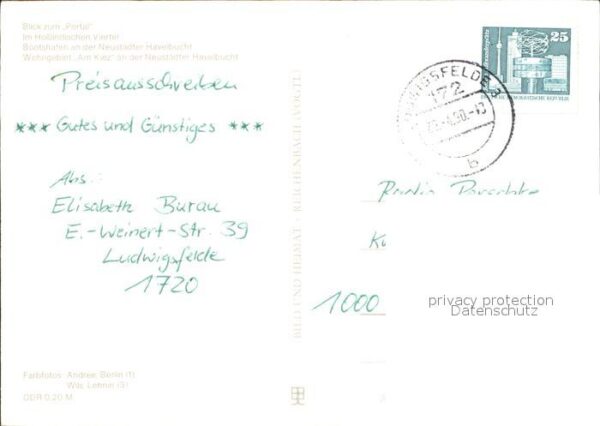 Blick zum "Portal"
Im Holländischen Viertel
Bootshafen an der Neustädter Havelbucht
Wohngebiet "Am Kiez" an der Neustädter Havelbucht
Preisausschreiben
*** Gutes und Günstiges ***
Abs.:
Elisabeth Burau
E.-Weinert-Str. 39
Ludwigsfelde
1720
Farbfotos: Andree, Berlin (1)
DDR 0,20 M
BILD UND HEIMAT
25
DEUTSCHE DEMOKRATISCHE REPUBLIK
LUDWIGSFELDE 3
172
b
Radio
1000
privacy protection
Datenschutz